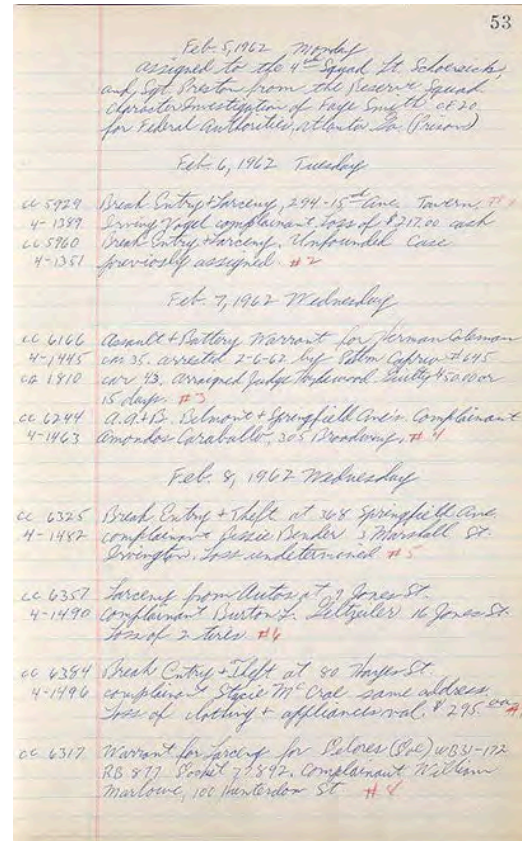 53
Feb. 5, 1962 Monday
assigned to the 4th Squad Lt.
and Sgt. Preston from the Reserve Squad
character Investigation of Faye Smyth CF 20
for Federal Authorities, Atlanta Ga. (Prison)
Feb. 6, 1962 Tuesday
cc 5929 Break Entry + Larceny, 294-15th Ave. Tavern. #1
4-1349 Irving Vogel complainant. Loss of $217.00 cash
cc 5960 Break Entry + Larceny, Unfounded Case
4-1351 previously assigned. #2
Feb. 7, 1962 Wednesday
cc 6166 Assault + Battery Warrant for Herman Coleman
4-1445 cm 35. arrested 2-6-62 by Patlm #645
CA 1810 car 43. Arraigned Judge Guilty $50.00 or
15 days. #3
cc 6244 A.A.+B. Belmont + Springfield Ave's. Complainant
4-1463 Amondos Caraballo, 305 Broadway. #4
Feb. 8, 1962 Wednesday
cc 6325 Break Entry + Theft at 368 Springfield Ave.
4-1482 complainant Jessie Bender 3 Marshall St.
Irvington. Loss undetermined #5
cc 6357 Larceny from Autos at 9 Jones St.
4-1490 complainant Burton L. 16 Jones St.
Loss of 2 tires. #6
cc 6384 Break Entry + Theft at 80 Hayes St.
4-1496 complainant Stacie McCrae same address.
Loss of clothing + appliances val. $295.00
cc 6317 Warrant for Larceny for Delores (Doe) WB31-172
RB 877 Docket 77892. Complainant William
Marlowe, 100 Hunterdon St #8